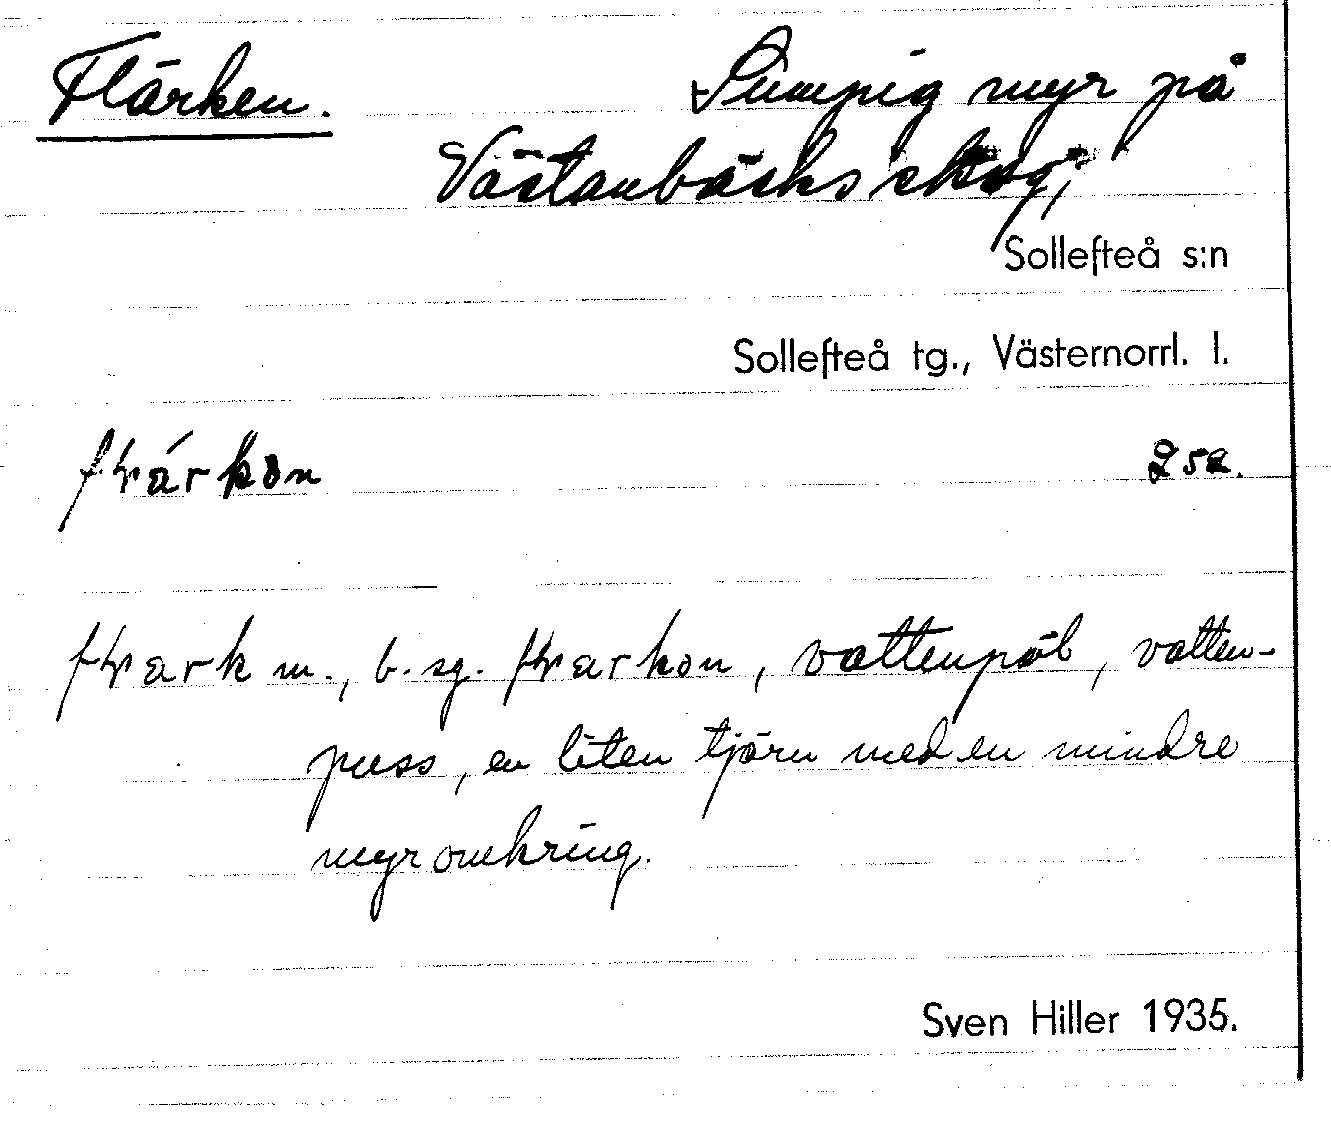 Flärken. Sumpig myr på
Västanbäcks skog;
Sollefteå s:n
Sollefteå tg., Västernorrl. l.
m., b. sg. vattenpöl, vatten-
puss, en liten tjärn med en mindre
myr omkring.
Sven Hiller 1935.